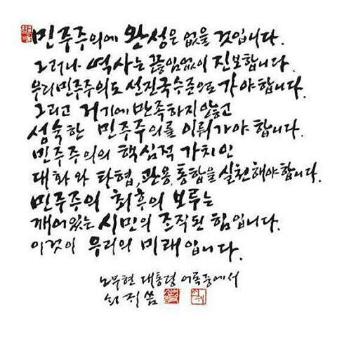 민주주의에 완성은 없을 것입니다.
그러나 역사는 끊임없이 진보합니다.
우리민주주의도 선진국수준으로 가야 합니다.
그리고 거기에 만족하지 않고
성숙한 민주주의를 이뤄가야 합니다.
민주주의의 핵심적 가치인
대화와 타협, 관용, 통합을 실천해야합니다.
민주주의 최후의 보루는
깨어있는 시민의 조직된 힘입니다.
이것이 우리의 미래입니다.
노무현 대통령 어록중에서